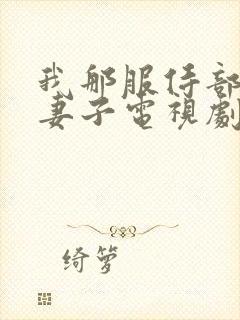 我那服侍部
妻子電視劇
绮萝